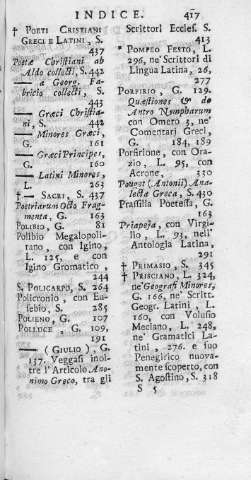 INDICE. 417
† POETI CRISTIANI
GRECI e LATINI, S.
437
Poetæ Christiani ab
Aldo collecti, S. 442
—— a Georg. Fa-
bricio collecti, S.
443
—— Græci Christia-
ni, S. 443
—— Minores Græci,
G. 161
—— Græci Principes,
G. 160
—— Latini Minores,
L. 263
—— SACRI, S. 437
Poetriarum Octo Frag-
menta, G. 163
POLIBIO, G. 81
Polibio Megalopoli-
tano, con Igino,
L. 125, e con
Igino Gromatico,
244
S. POLICARPO, S. 264
Policronio, con Eu-
sebio, S. 285
POLIENO, G. 107
POLLUCE, G. 109,
191
—— (GIULIO), G.
157. Veggasi inol-
tre l'Articolo Ano-
nimo Greco, tra gli
Scrittori Eccles. S.
413
* POMPEO FESTO, L.
296, ne' Scrittori di
Lingua Latina, 26,
277
PORFIRIO, G. 129.
Quæstiones & de
Antro Nympharum
con Omero 3, ne'
Comentarj Greci,
G. 184, 189
Porfirione, con Ora-
zio, L. 95, con
Acrone, 330
Poupot (Antonii) Ana-
lecta Græca, S. 430
Prassilla Poetessa, G.
163
Priapeja, con Virgi-
lio, L. 91, nell'
Antologia Latina,
291
† PRIMASIO, S. 345
† PRISCIANO, L. 324,
ne' Geografi Minores,
G. 166, ne' Scritt.
Geogr. Latini, L.
160, con Volusio
Meciano, L. 248,
ne' Gramatici La-
tini, 276. e suo
Penegirico nuova-
mente scoperto, con
S. Agostino, S. 318
S 5